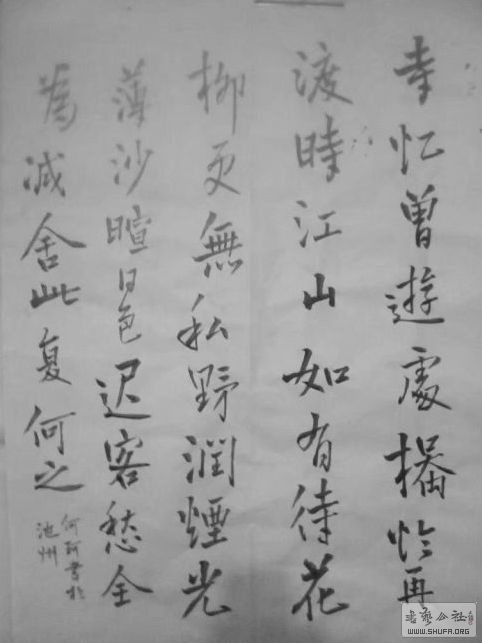 寺忆曾遊處橋怜再
渡時江山如有待花
柳更無私野潤煙光
薄沙暄日色迟客愁全
為减舍此复何之
何書於
池州
书艺公社
WWW.SHUFA.ORG